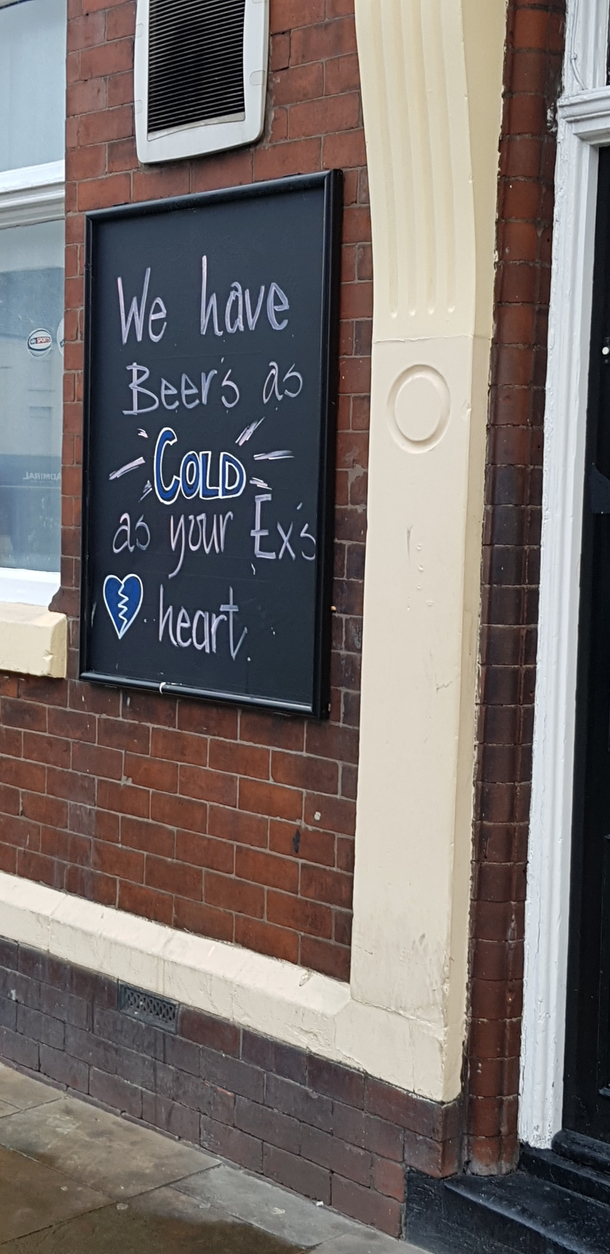 We have
Beer's as
COLD
as your Ex's
heart
ADMIRAL